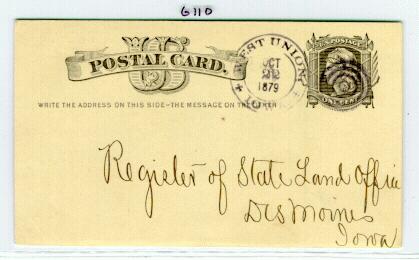 G110
US
POSTAL CARD.
WEST UNION
OCT
22
1879
IOWA
U.S. POSTAGE
ONE CENT
WRITE THE ADDRESS ON THIS SIDE-THE MESSAGE ON THE OTHER
Register of State Land Office
Des Moines
Iowa